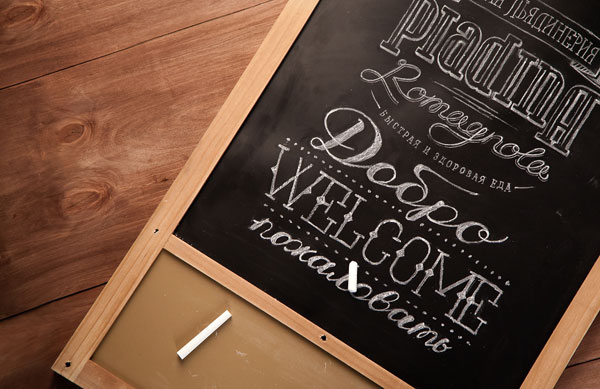 ПЬЯДИНЕРИЯ
PIADINA
Romagnola
БЫСТРАЯ И ЗДОРОВАЯ ЕДА
Добро
WELCOME
пожаловать